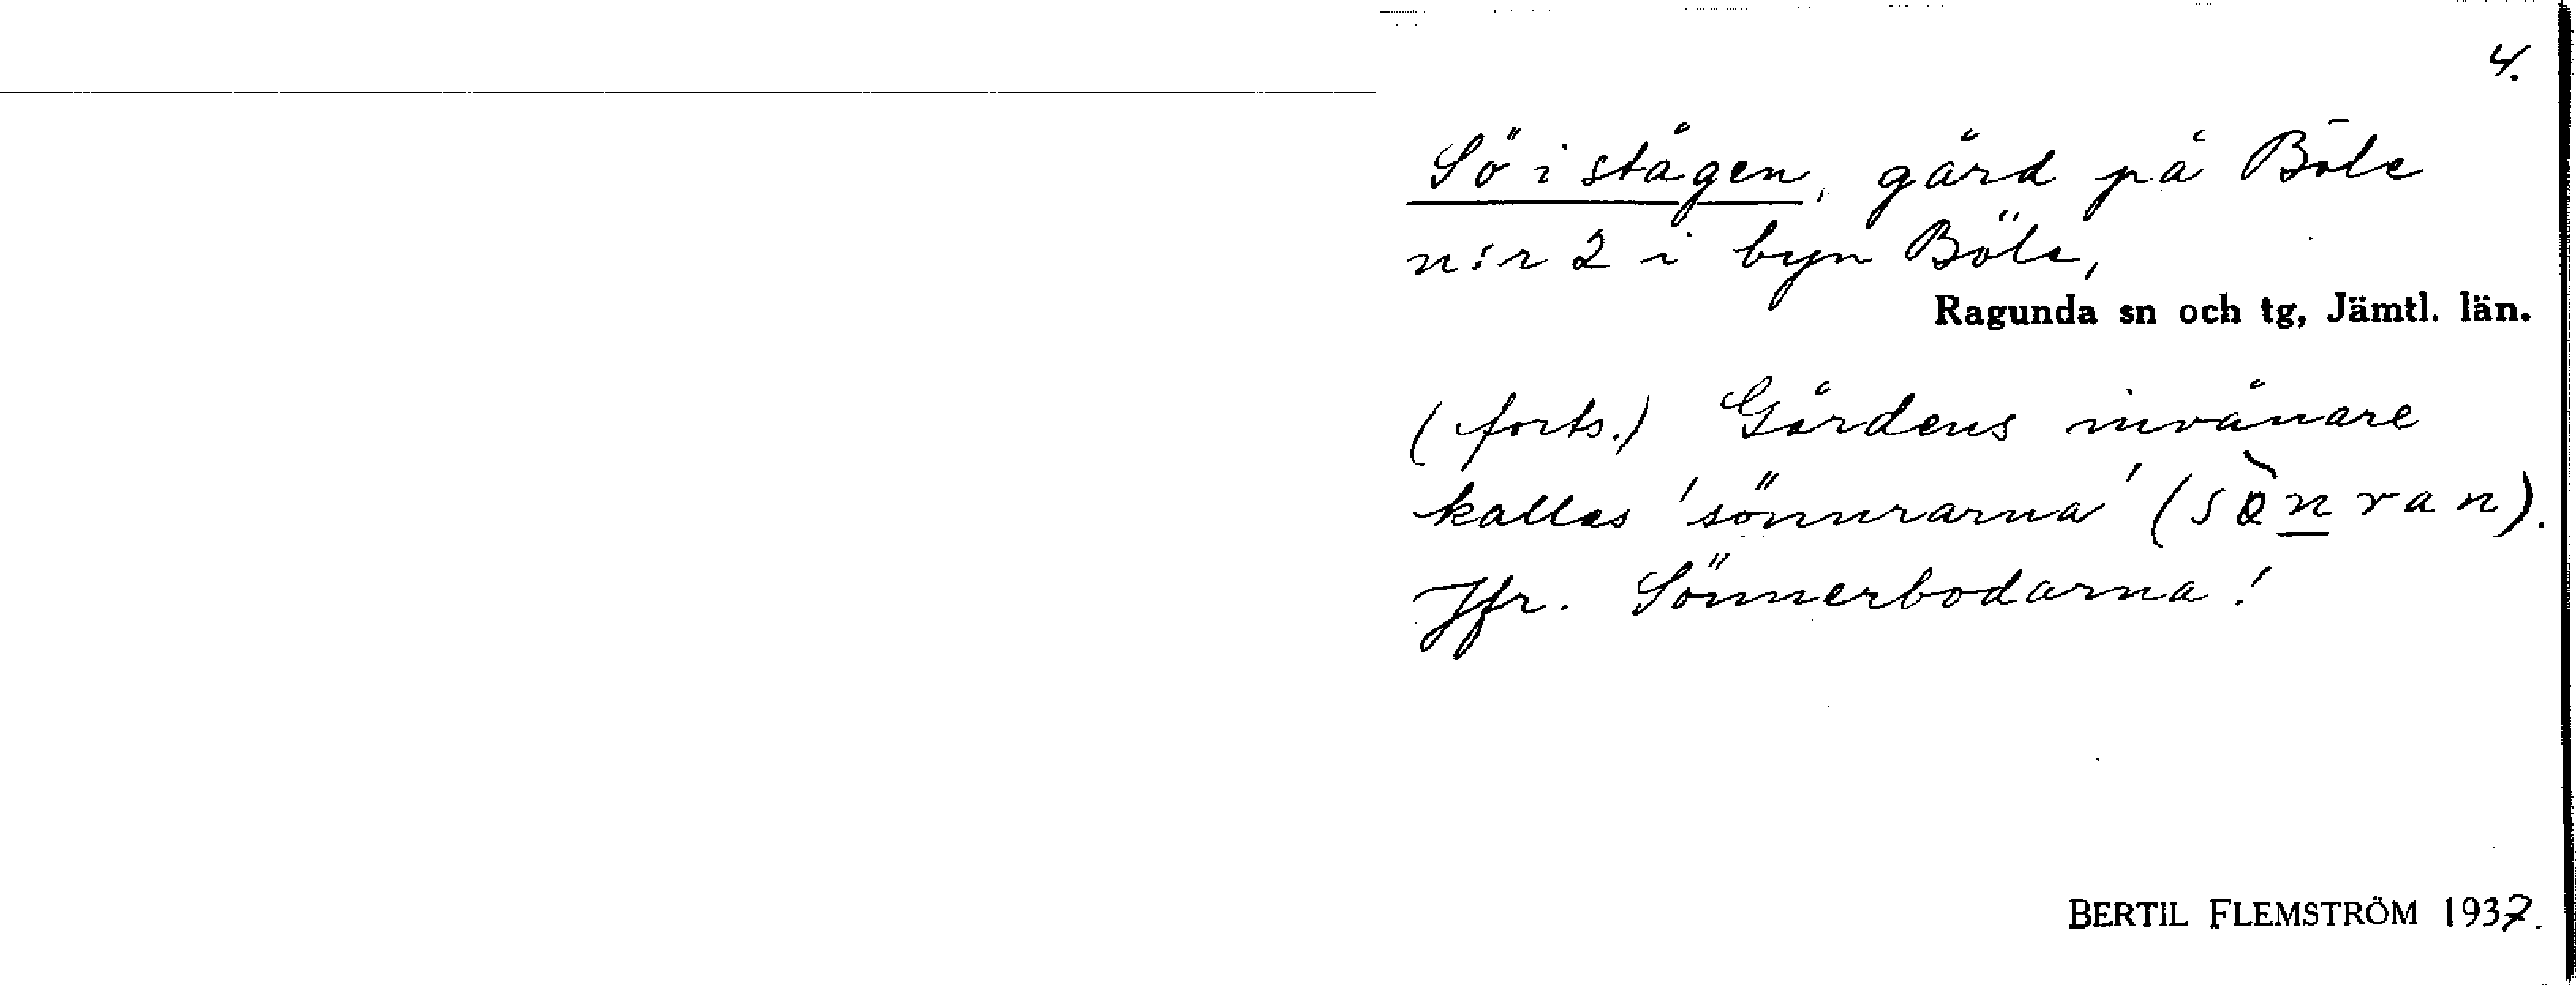 4.
Sö i stågen, gård på Böle
n:r 2 i byn Böle,
Ragunda sn och tg, Jämtl. län.
(forts.) Gårdens invånare
kallas 'sönnrarna' (sö̀n̲ran).
Jfr. Sönnerbodarna!
BERTIL FLEMSTRÖM 1937.